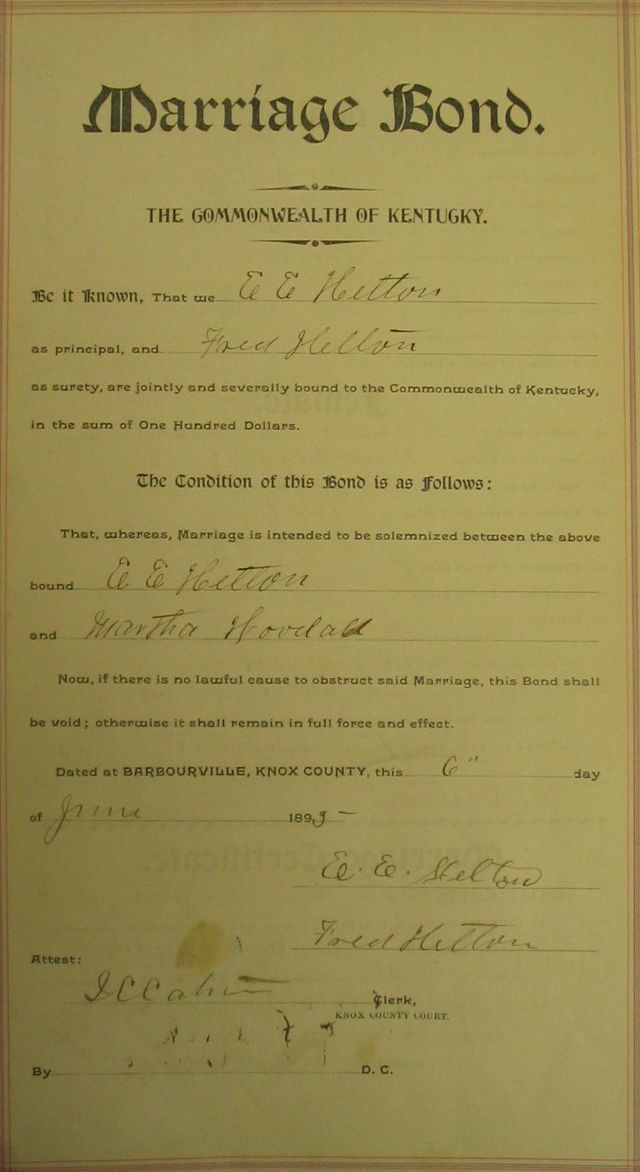 Marriage Bond.
THE COMMONWEALTH OF KENTUCKY.
Be it Known, That we E E Helton
as principal, and Fred Helton
as surety, are jointly and severally bound to the Commonwealth of Kentucky,
in the sum of One Hundred Dollars.
The Condition of this Bond is as Follows:
That, whereas, Marriage is intended to be solemnized between the above
bound E E Helton
and Martha
Now, if there is no lawful cause to obstruct said Marriage, this Bond shall
be void; otherwise it shall remain in full force and effect.
Dated at BARBOURVILLE, KNOX COUNTY, this 6" day
of June 189
E. E. Helton
Fred Helton
Attest:
Clerk,
KNOX COUNTY COURT.
By D. C.